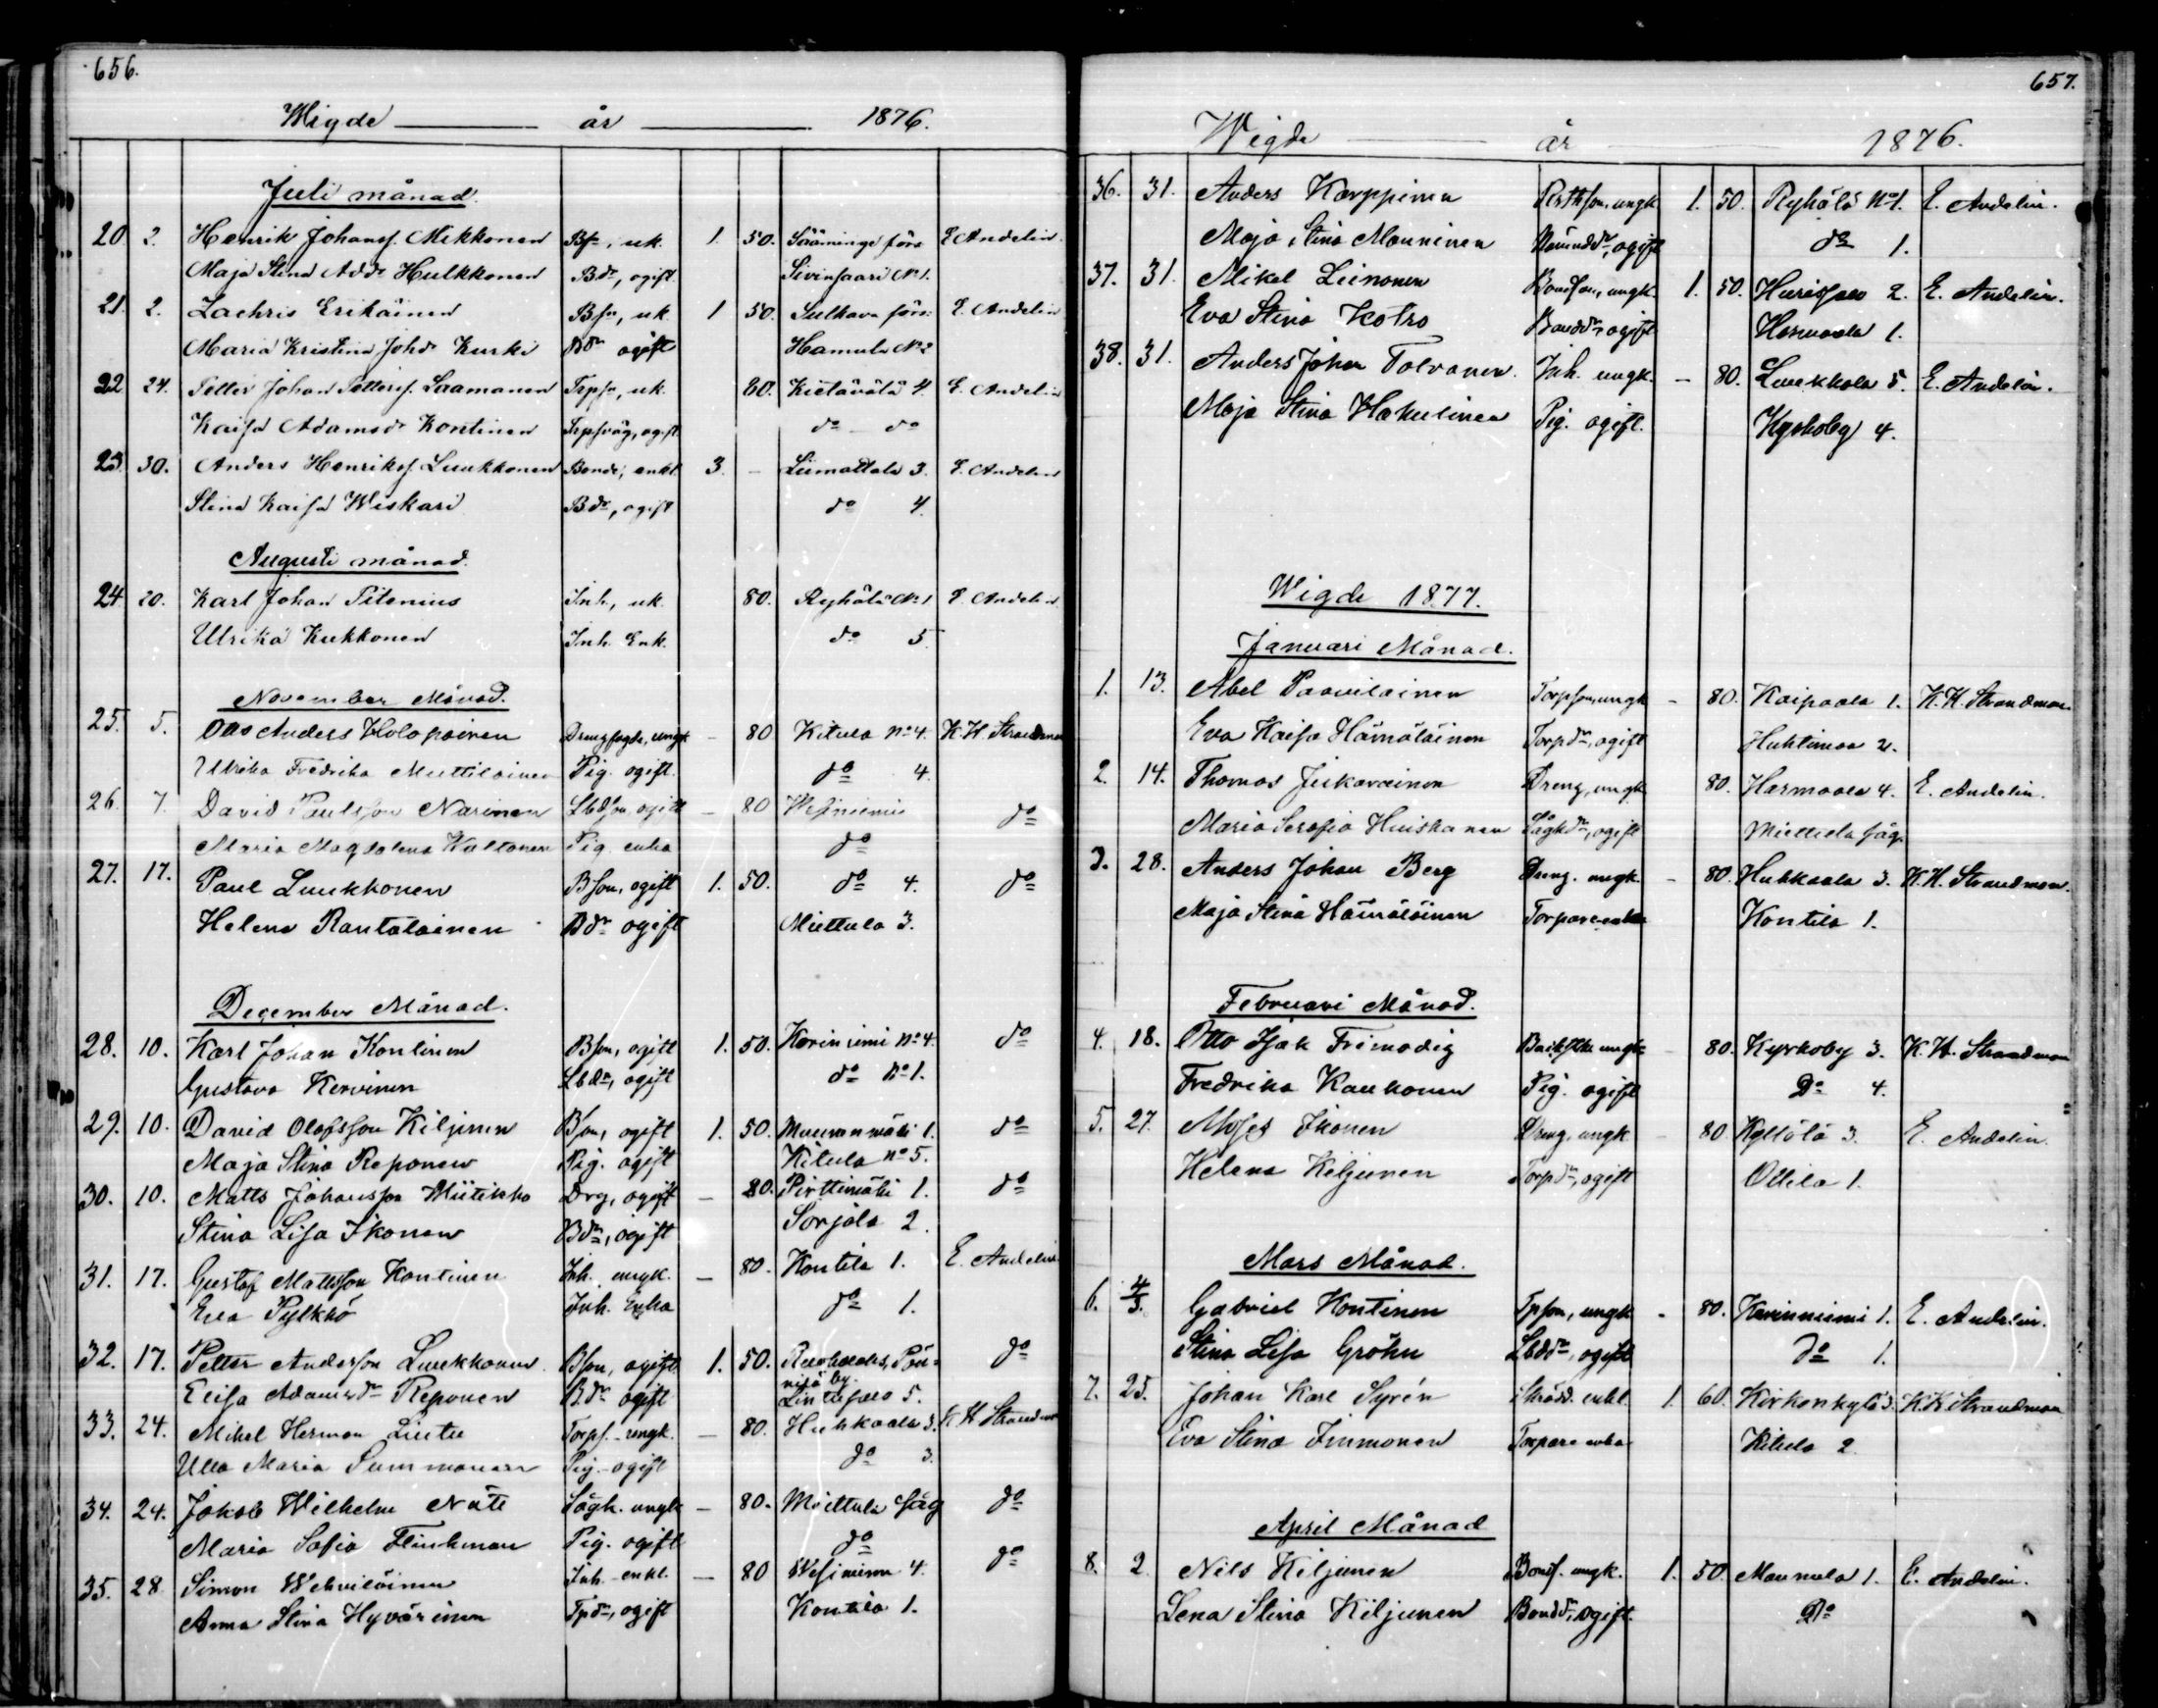 656.
Wigde år 1876.
Juli månad.
20. 2. Henrik Johansf. Mikkonen Bfn, uk. 1. 50. Sääminge förs E Andelin
Maja Stina Add. Hulkkonen Bdr, ogift. Sivinsaari No 1.
21. 2. Zachris Erikäinen Bsn, uk. 1 50. Sulkava förs: E. Andelin
Maria Kristina Johd. Kurki Bdr ogift Hamula No 2
22 24. Petter Johan Pettersf. Laamanen Trpsn, uk. 80. Kietävälä 4. E. Andelin
Kaisa Adamsdr Kontinen ogift do do
23. 30. Anders Henriksf. Luukkonen Bonde, enkl. 3. – Liimattala 3. E. Andelin
Stina Kaisa Wiskari Bdr, ogift do 4.
Augusti månad.
24 20. Karl Johan Pitenius Inh, uk. 80. Ryhälä No 1 E. Andelin
Ulrika Kukkonen Inh. Enk. do 5.
November Månad.
25. 5. Otto Anders Holopainen ungk – 80 Kitula No 4. K. H. Strandman
Ulrika Fredrika Muttilainen Pig. ogift. do 4.
26. 7. David Paulsson Narinen ogift – 80 Wesiniemi do
Maria Magdalena Kaltonen Pig. enka do
27. 17. Paul Luukkonen Bson, ogift 1. 50. do 4. do
Helena Rantalainen Bdr ogift Miettula 3.
December Månad.
28. 10. Karl Johan Kontinen Bson, ogift 1. 50. No 4. do
Gustava Kervinen Lbdr, ogift do No 1.
29. 10. David Olofsson Kiljunen Bson, ogift 1. 50. 1. do
Maja Stina Reponen Pig. ogift Kitula No 5.
30. 10. Matts Johansson Miitikko Drg, ogift – 80. Pirttimäki 1. do
Stina Lisa Ikonen Bdr, ogift Sorjala 2.
31. 17. Gustaf Mattsson Kontinen Inh. ungk. – 80. Kontila 1. E. Andelin
Eva Pylkkö Inh. Enka do 1.
32. 17. Petter Anderson Luukkonen Bson, ogift. 1. 50. do
by.
Elisa Adamsdr Reponen Bdr ogift Lintusalo 5.
33. 24. Mikel Herman Lintu Torps. ungk. – 80. Huhkaala 3. K H Strandman
Ulla Maria Summanen Pig. ogift do 3.
34. 24. Jakob Wilhelm Näti Sågk. ungk – 80. Miettula såg do
Maria Sofia Flinkman Pig. ogift do
35. 28 Simon Wehviläinen Inh. enkl. – 80 4. do
Anna Stina Hyvärinen Tpdr, ogift Kontila 1.
657.
Wigde år 1876.
36. 31. Anders Karppinen ungk 1. 50. Ryhälä No 1. E. Andelin.
Maja Stina Mauninen ogift do 1.
37. 31. Mikel Leinonen Bondson, ungk. 1. 50. 2. E. Andelin.
Eva Stina Kotro Bonddr, ogift Harmaala 1.
38. 31. Anders Johan Tolvanen Inh. ungk. – 80. Luukkola 5. E. Andelin.
Maja Stina Hakulinen Pig. ogift. Kyrkoby 4.
Wigde 1877.
Januari Månad.
1. 13. Abel Paavilainen Torpson, ungk – 80. Kaipaala 1. K. H. Strandman.
Eva Kaisa Hämäläinen Torpdr, ogift Huhtimaa 2.
2. 14. Thomas Jukarainen Dreng, ungk 80. Harmaala 4. E. Andelin.
Maria Serafia Huiskanen Sågkdr, ogift Miettula såg.
3. 28. Anders Johan Berg Dreng. ungk. – 80. Huhkaala 3. K. H. Strandman.
Maja Stina Hämäläinen Torpare enka Kontila 1.
Februari Månad.
4. 18. Otto Isak Frimodig ungk 80. Kyrkoby 3. K. H. Strandman
Fredrika Kaukonen Pig. ogift Do 4.
5. 27. Moses Ikonen Dreng, ungk 80. 3. E. Andelin.
Helena Kiljunen Torpdr, ogift Ollila 1.
Mars Månad.
6. 4/3. Gabriel Kontinen Tpson, ungk - 80. Karinniemi 1. E. Andelin.
Stina Lisa Gröhn Lbddr, ogift do 1.
7. 25. Johan Karl Syrén Skrädd. enkl. 1. 60. Kirkonkylä 3. K. H. Strandman
Eva Stina Immonen Torpare enka Kitula 2.
April Månad
8. 2. Nils Kiljunen Bonds. ungk. 1. 50. Maunula 1. E. Andelin.
Lena Stina Kiljunen Bonddr, ogift. Do